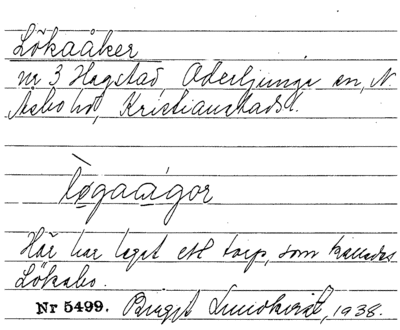 Lökaåker
nr 3 Hagstad Oderljunga sn, N.
Åsbo hd, Kristianstads l.
løgaágor
Här har legat ett torp, som kallades
Lökabo.
Nr 5499. Birgit Lundkvist, 1938.